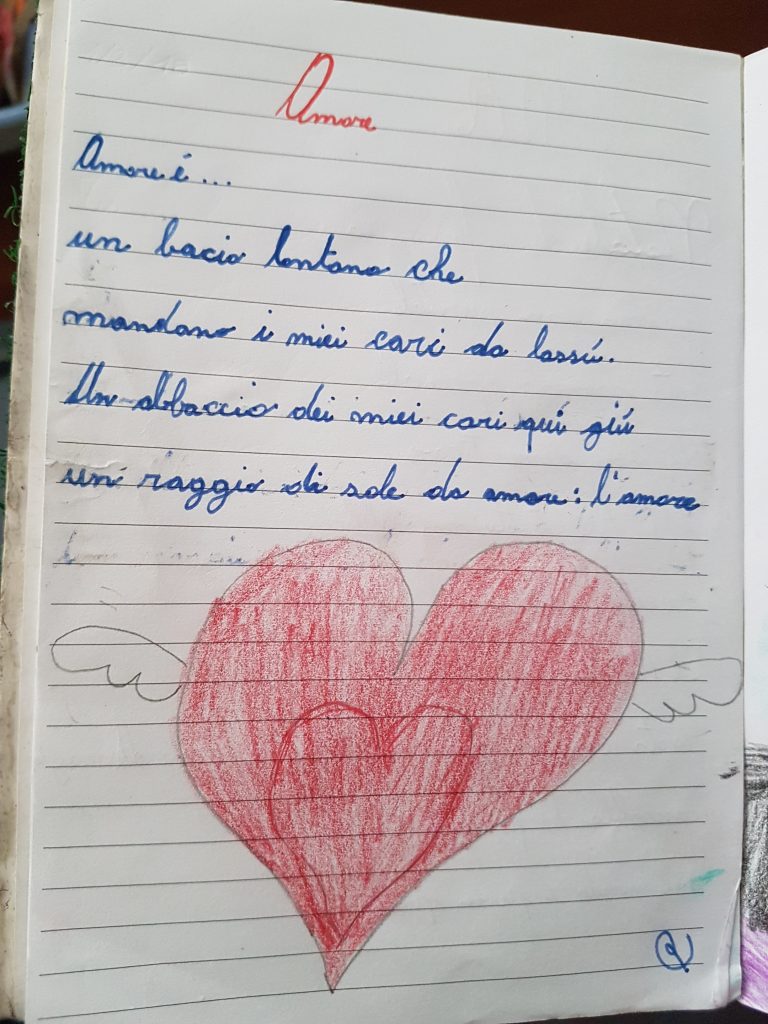 Amore
Amore é...
un bacio lontano che
mandano i miei cari da lassú.
Un abbaccio dei miei cari quí giú
un raggio di sole da amore: l'amore